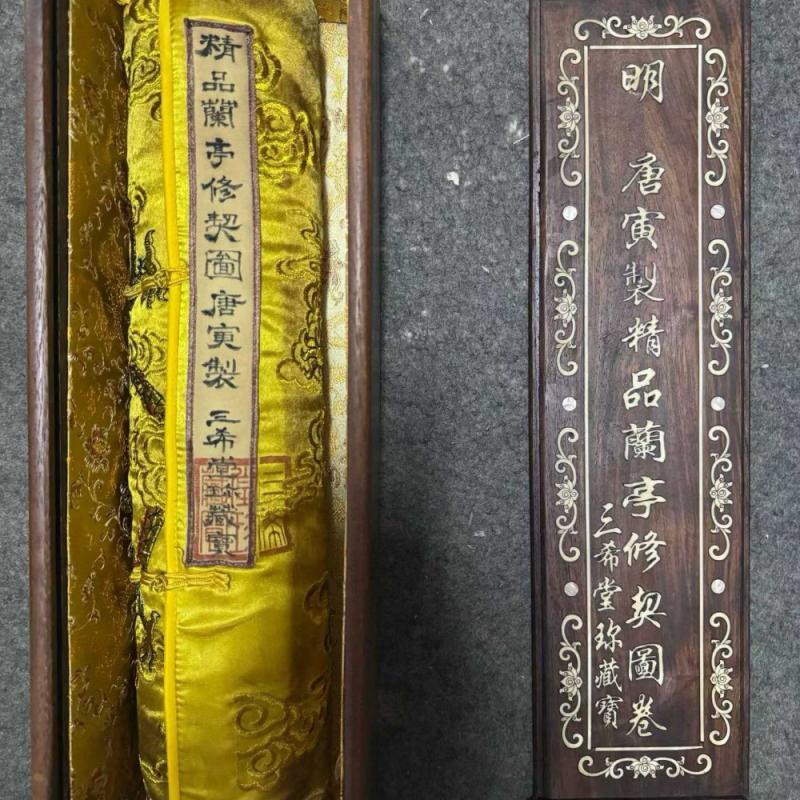 精品蘭亭修契圖唐寅製 三希堂珎藏寶
明 唐寅製精品蘭亭修契圖卷
三希堂珎藏寶